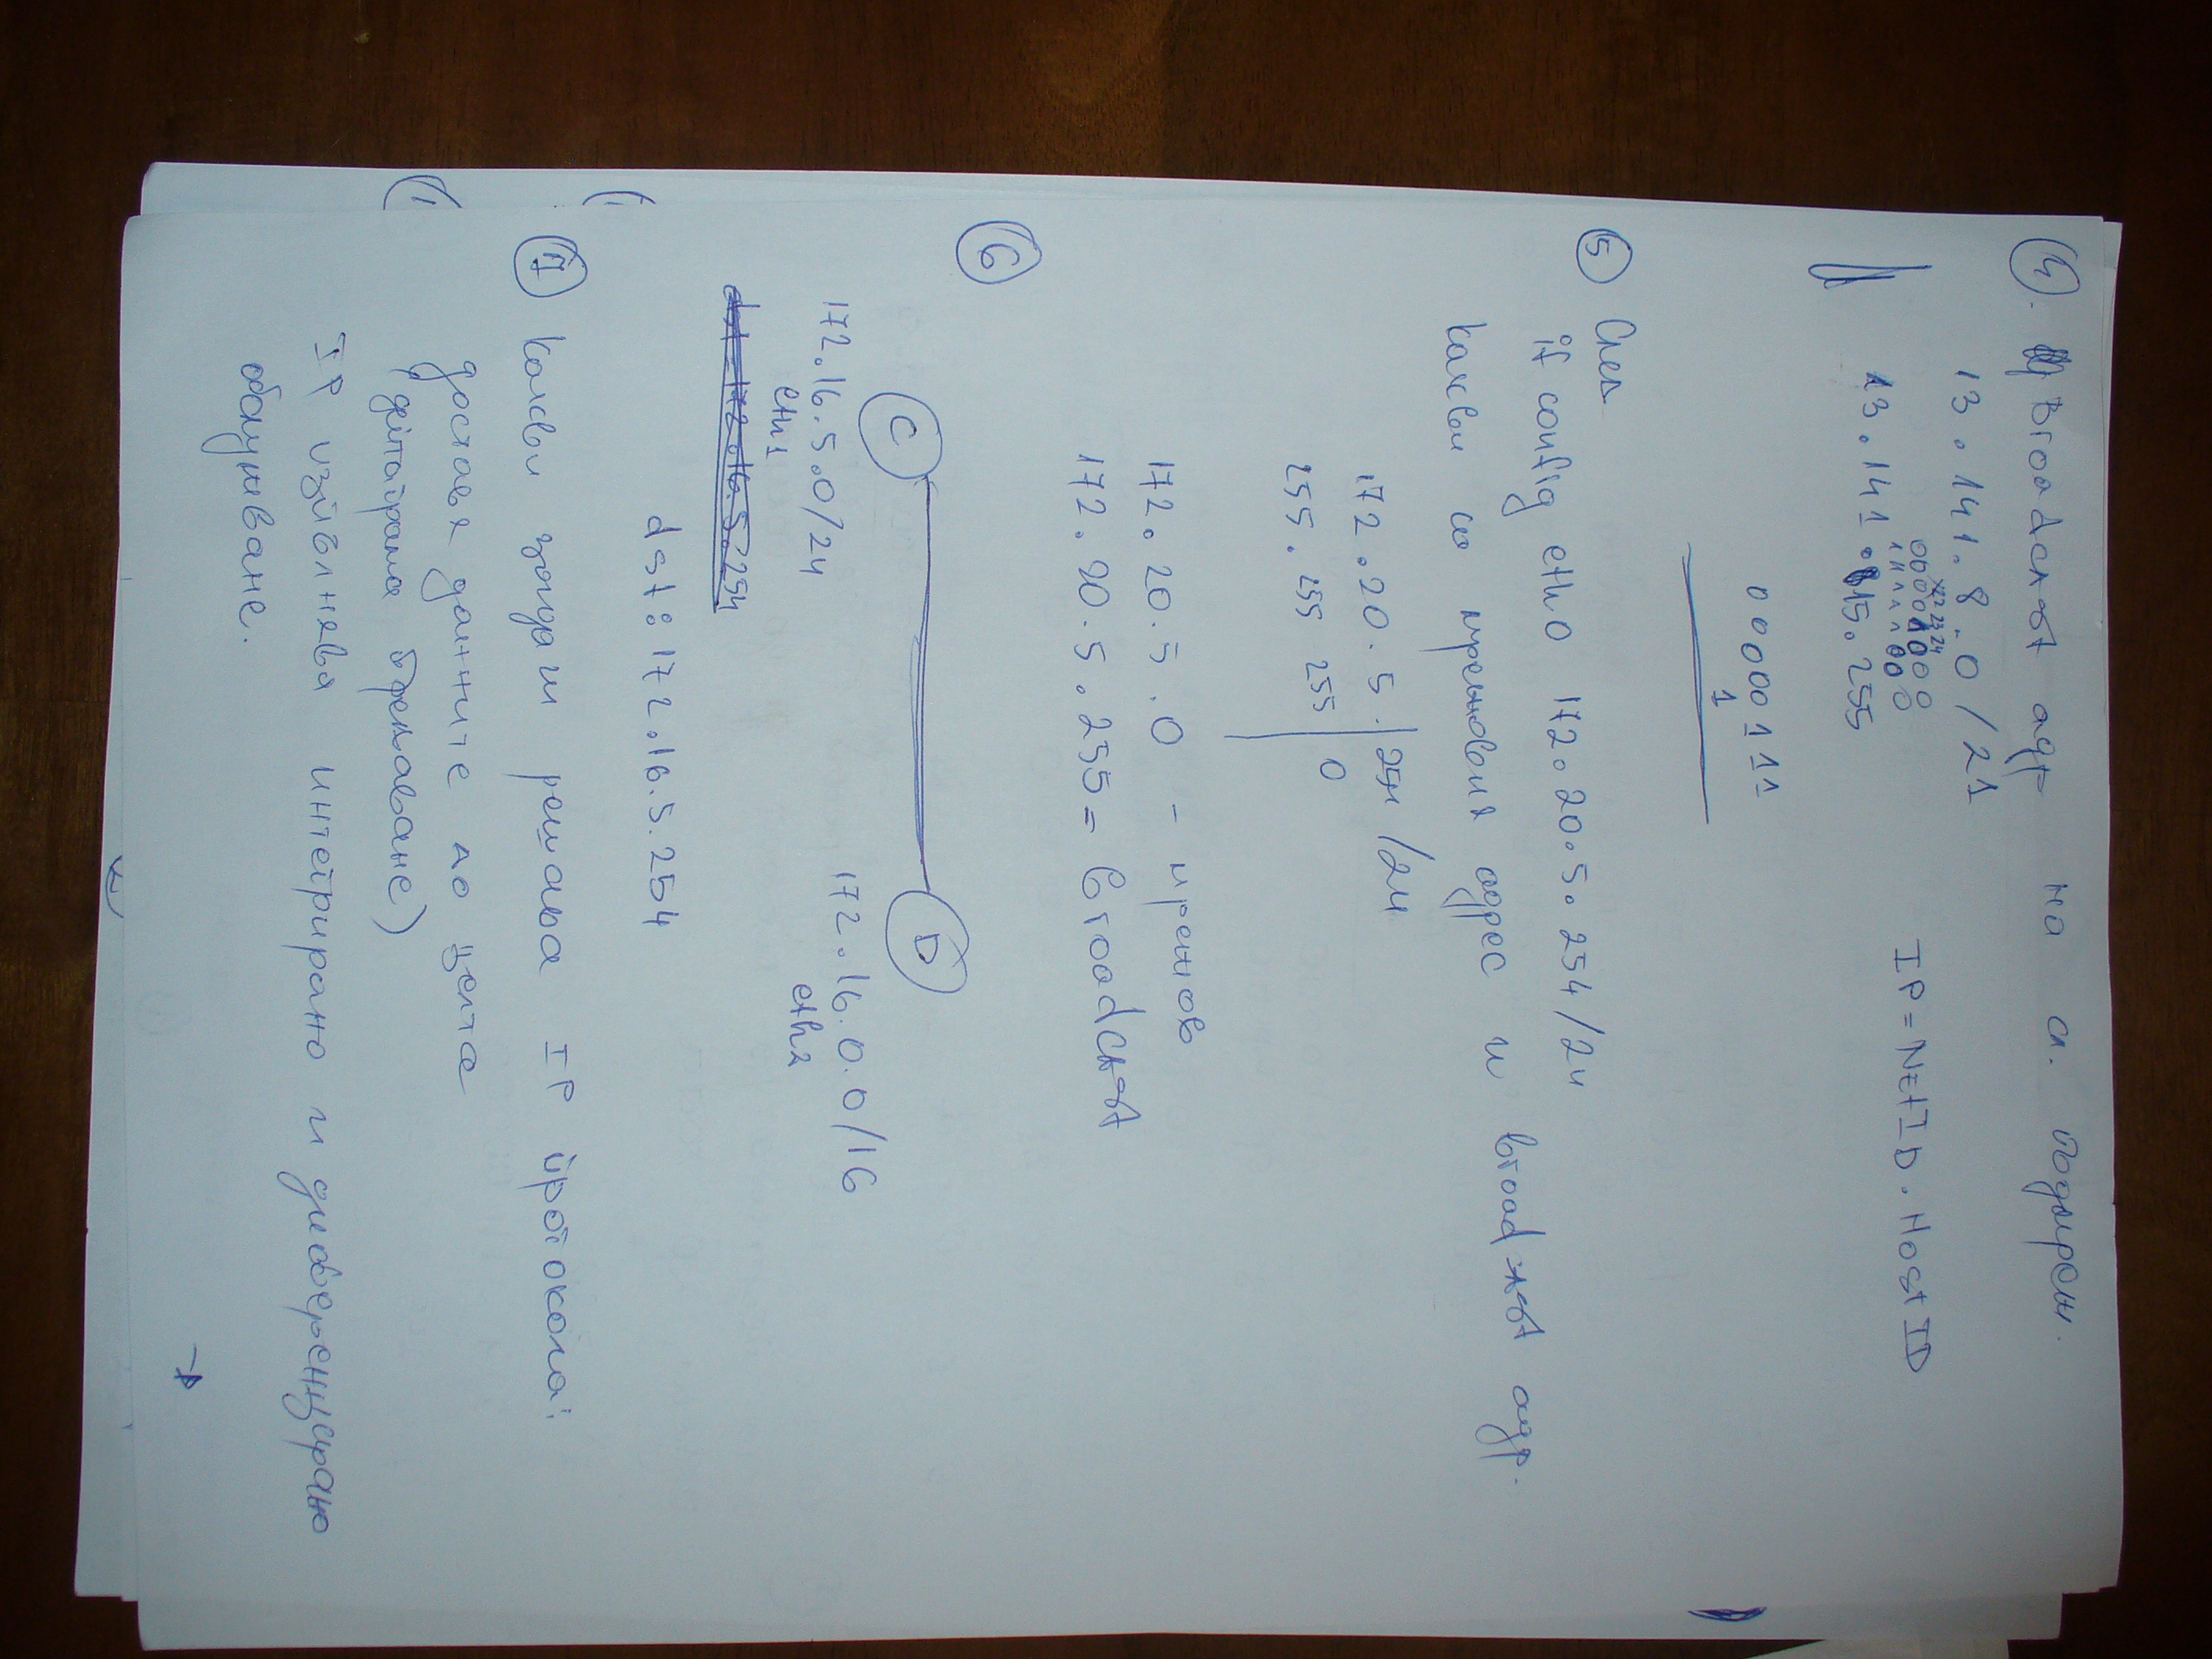 4. Broadcast адр на сл. подмреж.
13.141.8.0/21
X22 23 24
00001000
11111000
13.141.15.255
IP = NetID.HostID
00000111
1
5 След
if config eth0 172.20.5.254/24
какви са мрежовия адрес и broadcast адр.
172.20.5.|254 /24
255.255 255 | 0
172.20.5.0 - мрежов
172.20.5.255 = broadcast
6
C D
172.16.5.0/24 172.16.0.0/16
eth1 eth2
dst = 172.16.5.254
dst: 172.16.5.254
7 Какви задачи решава IP протокола:
доставя данните до целта
(дейтаграма
IP изпълнява интегрирано и диференцирано
обслужване.